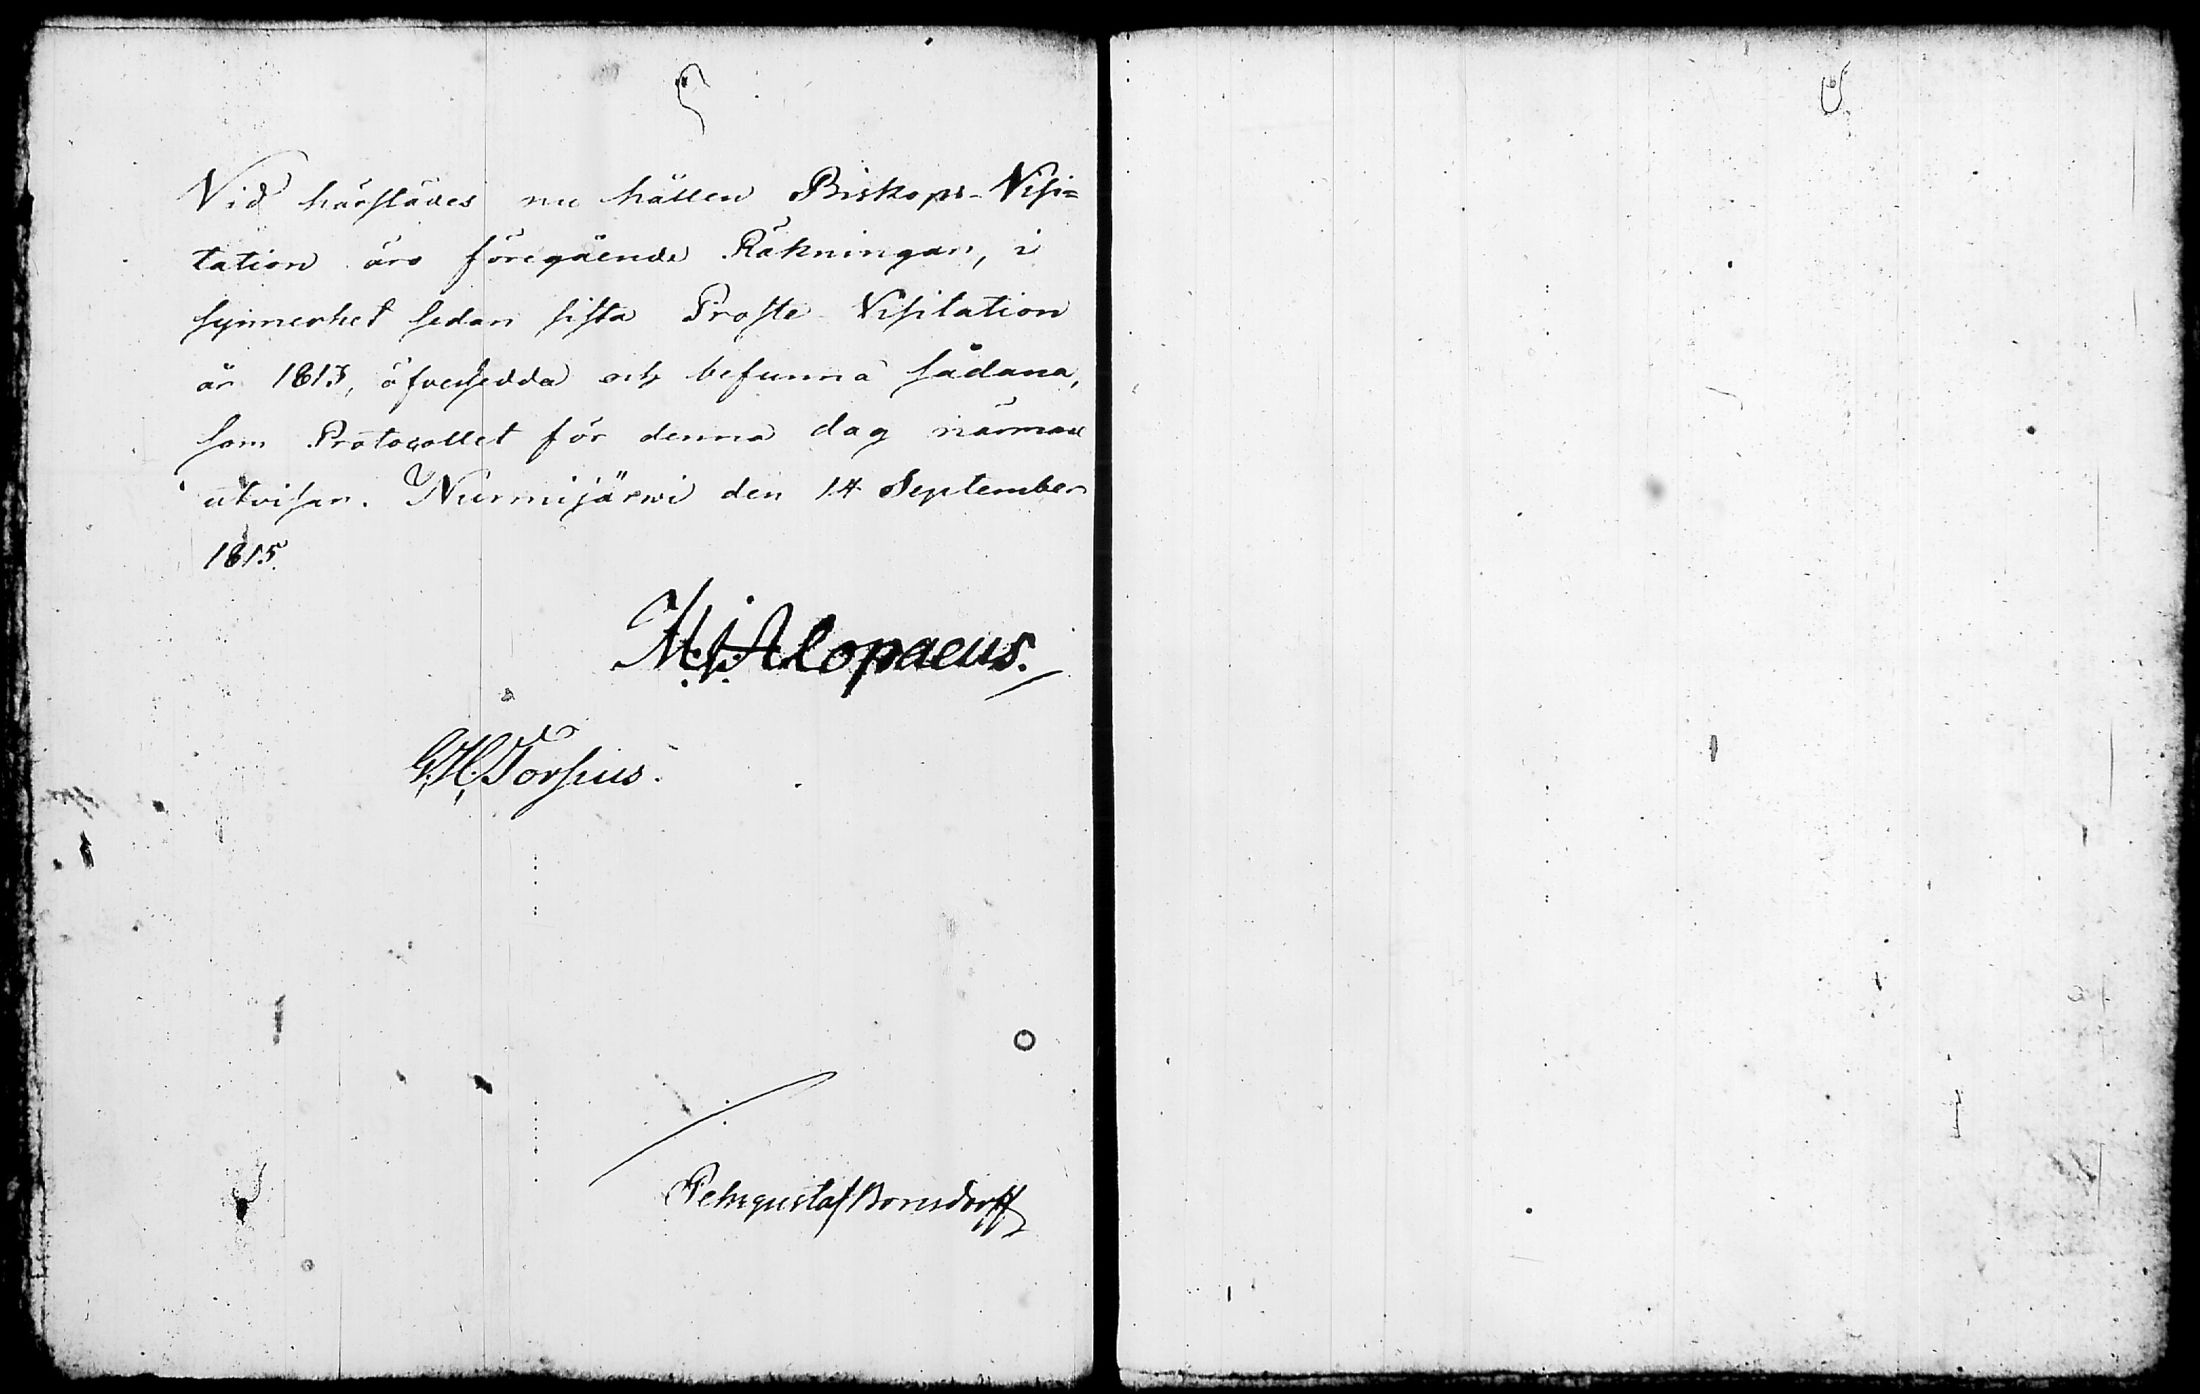 Vid härstädes nu hållen Biskops-Visi=
tation äro föregående Räkningar, i
synnerhet sedan sista Proste Visitation
år 1813, öfversedda och befunna sådana,
som Protocollet för denna dag närmare
utvisar. Nurmijärwi den 14 September
1815.
M. J. Alopaeus.
G. H. Forsius.
Pehr Gustaf Bonsdorff